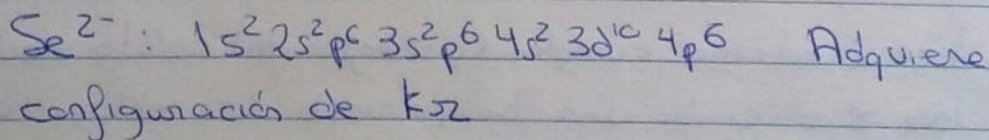 Se²⁻: 1s² 2s² p⁶ 3s² p⁶ 4s² 3d¹⁰ 4p⁶ Adquiere
configuración de Kr